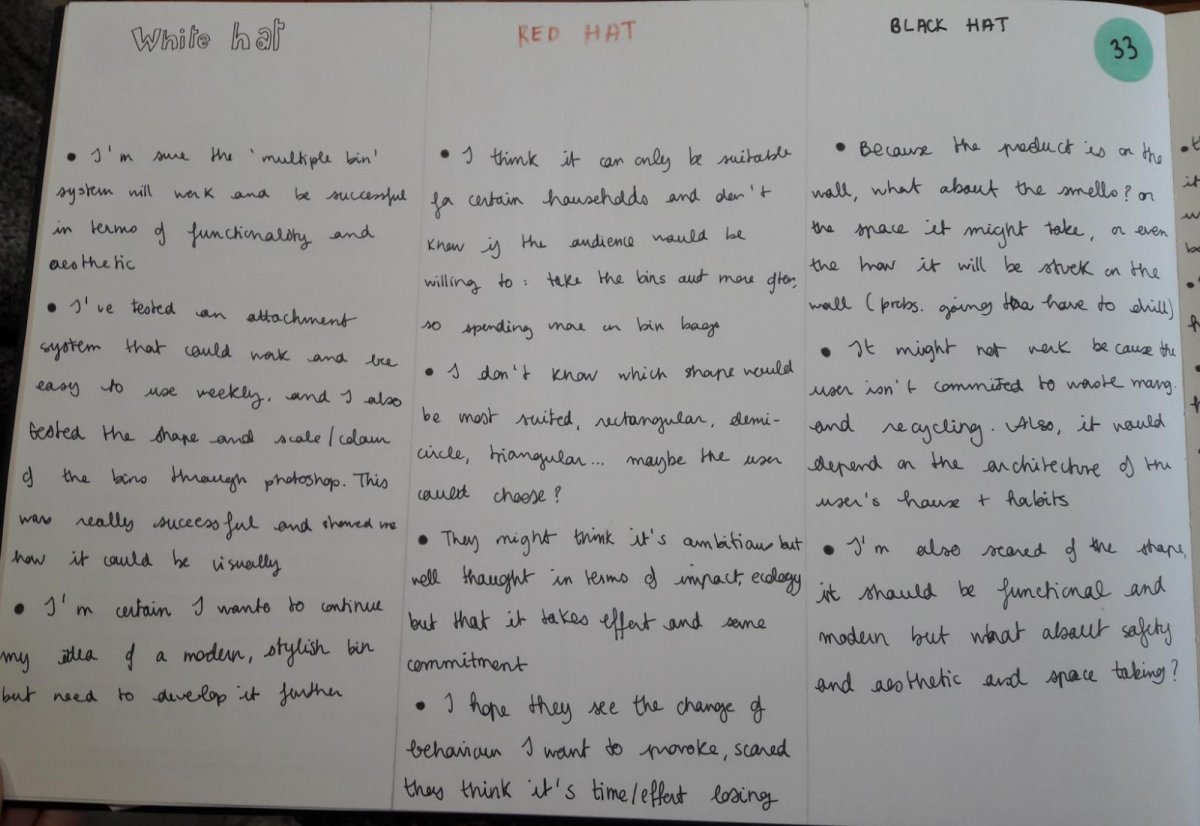 White hat
• I'm sure the 'multiple bin'
system will work and be successful
in terms of functionality and
aesthetic
• I've tested an attachment
system that could work and be
easy to use weekly, and I also
tested the shape and scale/colour
of the bins through photoshop. This
was really successful and showed me
how it could be visually
• I'm certain I want to continue
my idea of a modern, stylish bin
but need to develop it further
RED HAT
• I think it can only be suitable
for certain households and don't
know if the audience would be
willing to: take the bins out more often,
so spending more on bin bags
• I don't know which shape would
be most suited, rectangular, demi-
circle, triangular... maybe the user
could choose?
• They might think it's ambitious but
well thought in terms of impact, ecology
but that it takes effort and some
commitment
• I hope they see the change of
behaviour I want to provoke, scared
they think it's time/effort losing
BLACK HAT
33
• Because the product is on the
wall, what about the smells? or
the space it might take, or even
the how it will be stuck on the
wall (probs. going to have to drill)
• It might not work because the
user isn't commited to waste mang.
and recycling. Also, it would
depend on the architecture of the
user's house + habits
• I'm also scared of the shape,
it should be functional and
modern but what about safety
and aesthetic and space taking?